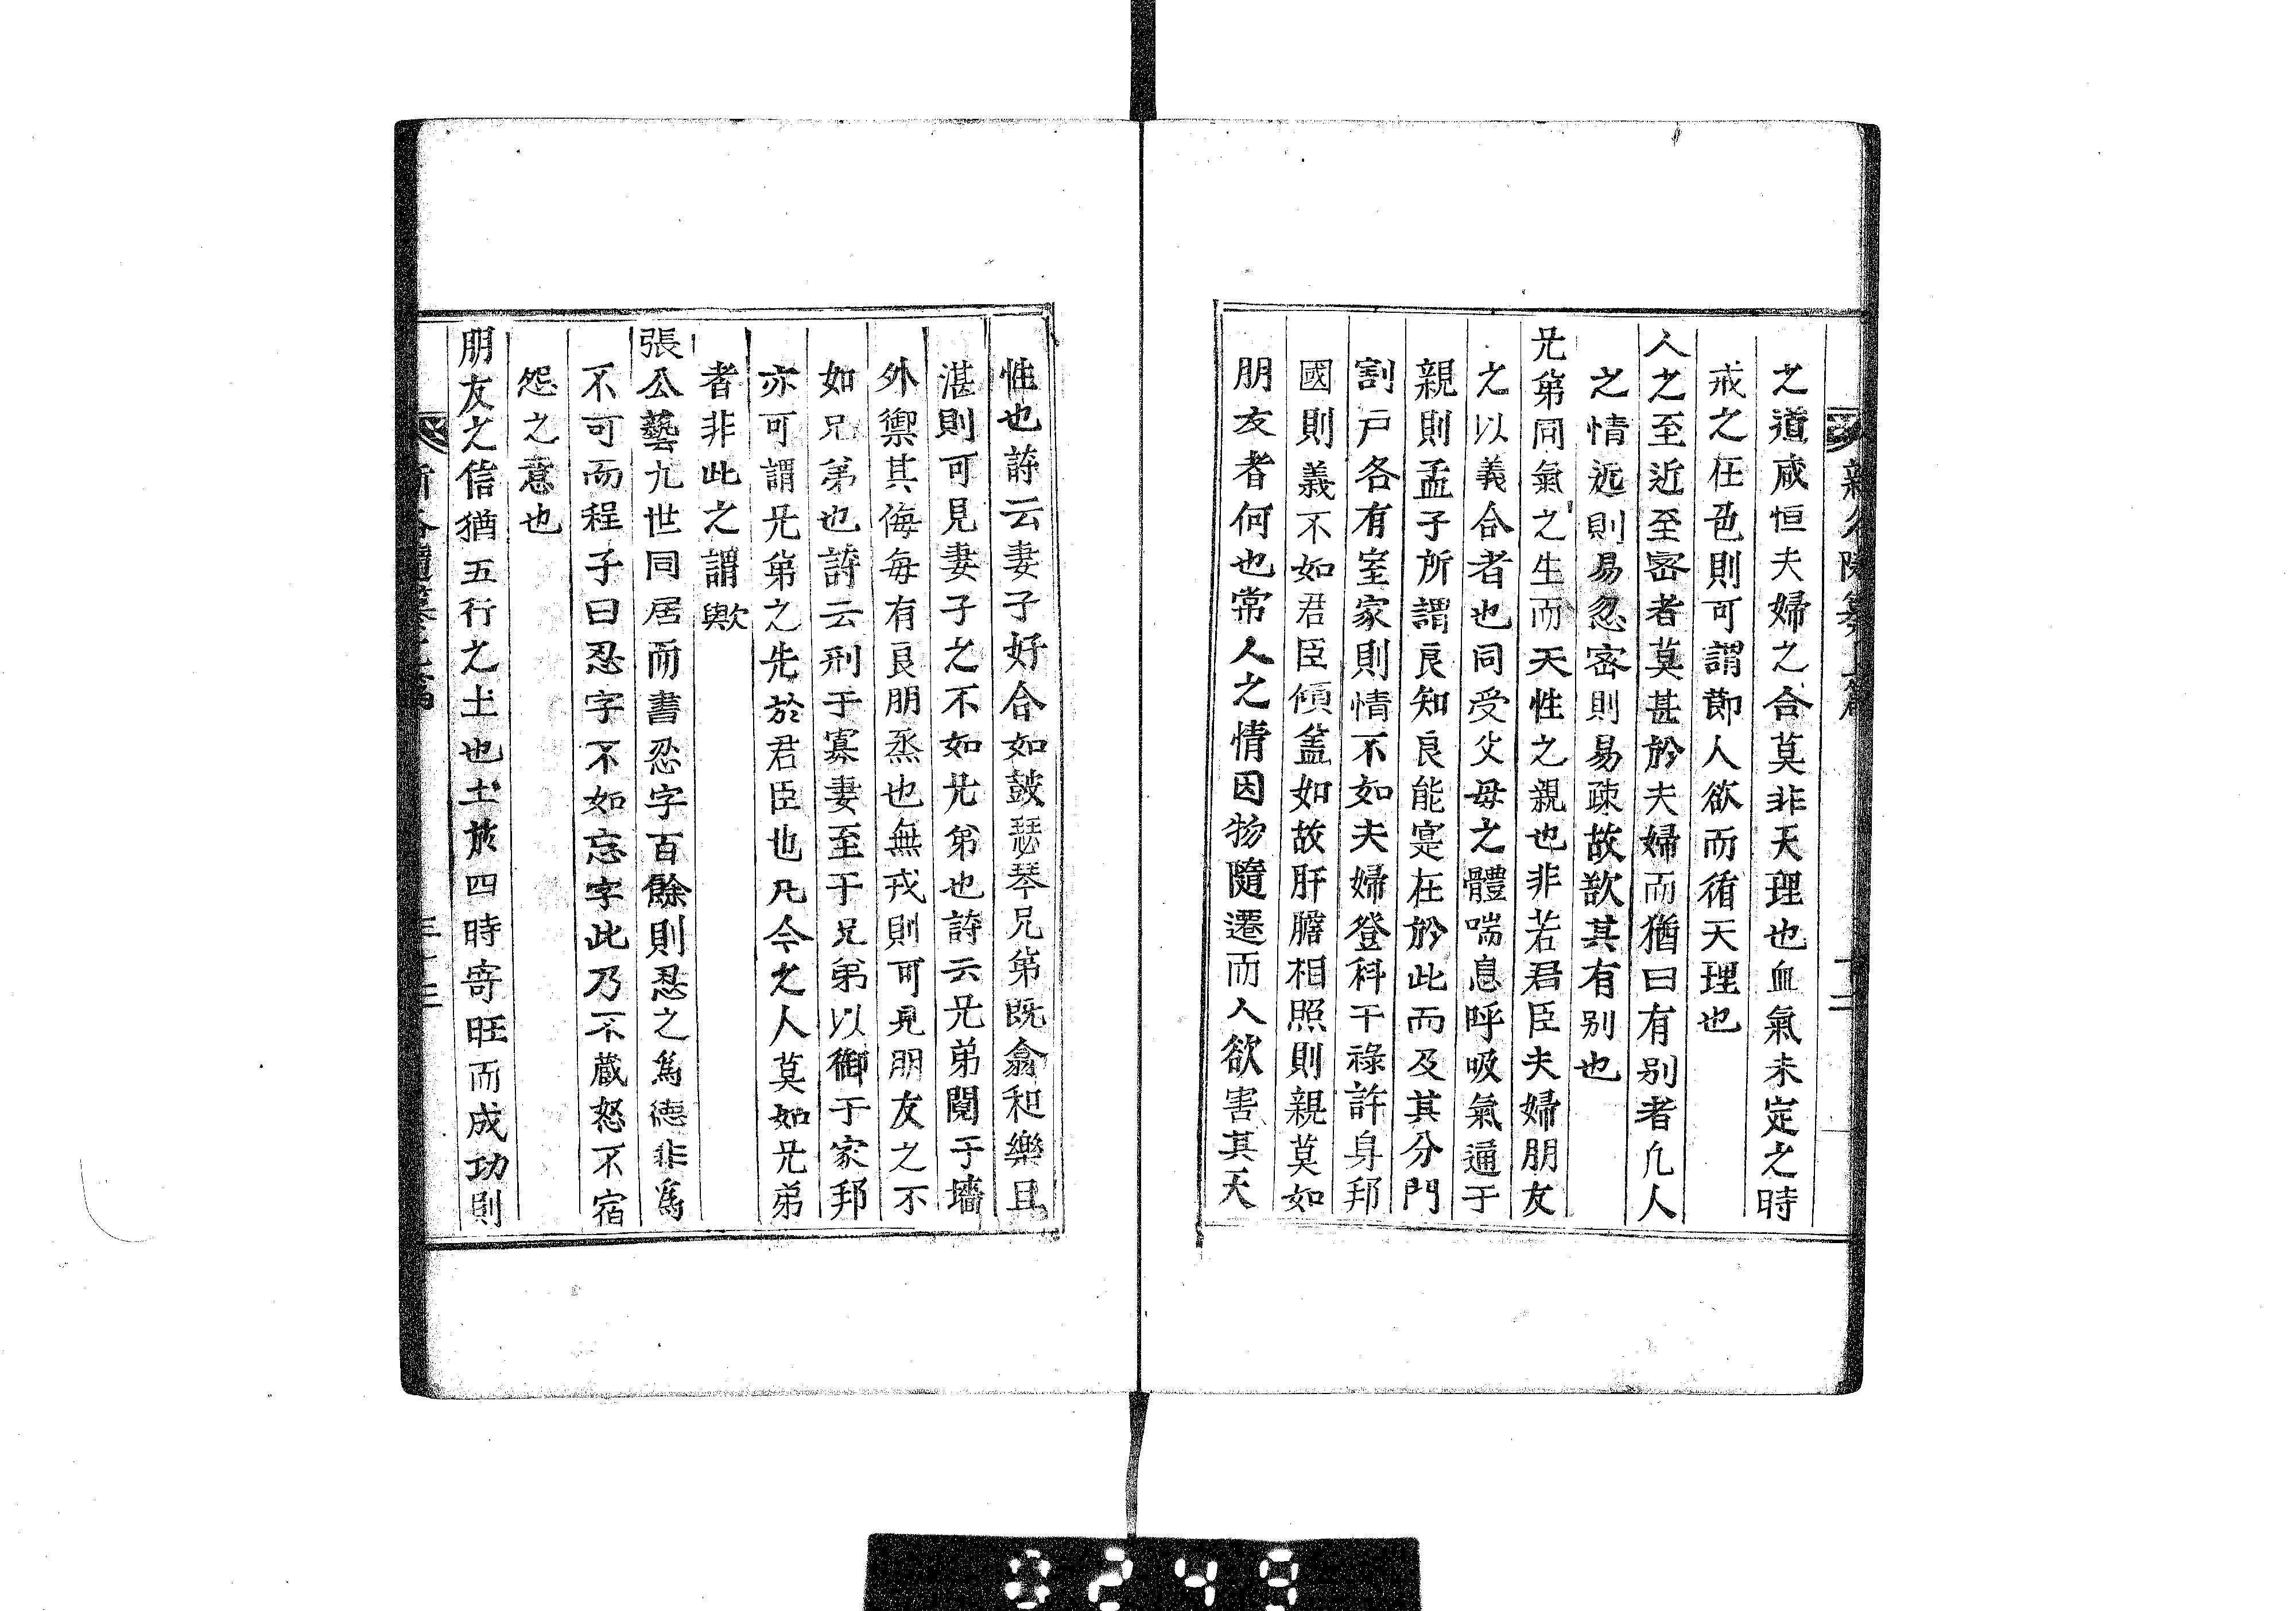 之道咸恒夫婦之合莫非天理也血氣未定之時
戒之在色則可謂節人欲而循天理也
人之至近至密者莫甚於夫婦而猶曰有别者凡人
之情近則易忽密則易疎故歆其有别也
兄弟同氣之生而天性之親也非若君臣夫婦朋友
之以義合者也同受父母之體喘息呼吸氣通于
親則孟子所謂良知良能寔在於此而及其分門
割戶各有室家則情不如夫婦登科干祿許身邦
國則義不如君臣傾盖如故肝膽相照則親莫如
朋友者何也常人之情因物隨遷而人欲害其天
性也詩云妻子好合如鼓瑟琴兄弟既翕和樂且
湛則可見妻子之不如兄弟也詩云兄弟鬩于墻
外禦其侮每有良朋烝也無戎則可見朋友之不
如兄弟也詩云刑于寡妻至于兄弟以御于家邦
亦可謂兄弟之先於君臣也凡今之人莫如兄弟
者非此之謂歟
張公藝九世同居而書忍字百餘則忍之爲德非爲
不可而程子曰忍字不如忘字此乃不蔵怒不宿
怨之意也
朋友之信猶五行之土也土於四時寄旺而成功則